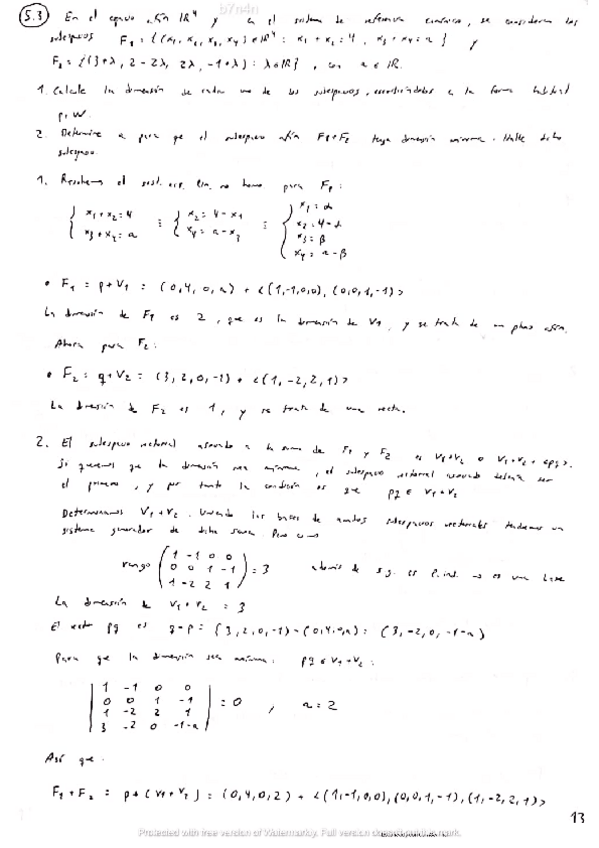 b7n4n
5.3 En el espacio afín ℝ⁴ y en el sistema de referencia canónico, se consideran los
subespacios F₁ = {(x₁, x₂, x₃, x₄) ∈ ℝ⁴ : x₁ + x₂ = 4, x₃ + x₄ = a} y
F₂ = {(3+λ, 2-2λ, 2λ, -1+λ) : λ ∈ ℝ}, con a ∈ ℝ.
1. Calcule la dimensión de cada uno de los subespacios, escribiéndolos en la forma habitual
p + W.
2. Determine a para que el subespacio afín F₁+F₂ tenga dimensión mínima. Halle dicho
subespacio.
1. Resolvemos el sist. ec. lin. no homo para F₁:
{ x₁+x₂=4 { x₂ = 4-x₁ { x₁ = α
{ x₃+x₄=a { x₄ = a-x₃ { x₂ = 4-α
x₃ = β
x₄ = a-β
• F₁ = p+V₁ = (0,4,0,a) + <(1,-1,0,0), (0,0,1,-1)>
La dimensión de F₁ es 2, que es la dimensión de V₁, y se trata de un plano afín.
Ahora para F₂:
• F₂ = q+V₂ = (3,2,0,-1) + <(1,-2,2,1)>
La dimensión de F₂ es 1, y se trata de una recta.
2. El subespacio vectorial asociado a la suma de F₁ y F₂ es V₁+V₂ o V₁+V₂+<pq>.
Si queremos que la dimensión sea mínima, el subespacio vectorial asociado debería ser
el primero, y por tanto la condición es que pq ∈ V₁+V₂
Determinamos V₁+V₂. Uniendo las bases de ambos subespacios vectoriales tendremos un
sistema generador de dicha suma. Pero como
rango ( 1 -1 0 0
0 0 1 -1
1 -2 2 1 ) = 3 además de s.g. es l.ind. → es una base
La dimensión de V₁+V₂ = 3
El vector pq es q-p = (3,2,0,-1)-(0,4,0,a) = (3,-2,0,-1-a)
Para que la dimensión sea mínima: pq ∈ V₁+V₂:
| 1 -1 0 0 |
| 0 0 1 -1 |
| 1 -2 2 1 | = 0 , a = 2
| 3 -2 0 -1-a |
Así que
F₁+F₂ = p+(V₁+V₂) = (0,4,0,2) + <(1,-1,0,0), (0,0,1,-1), (1,-2,2,1)>
13
Protected with free version of Watermarkly. Full version doesn't put this mark.